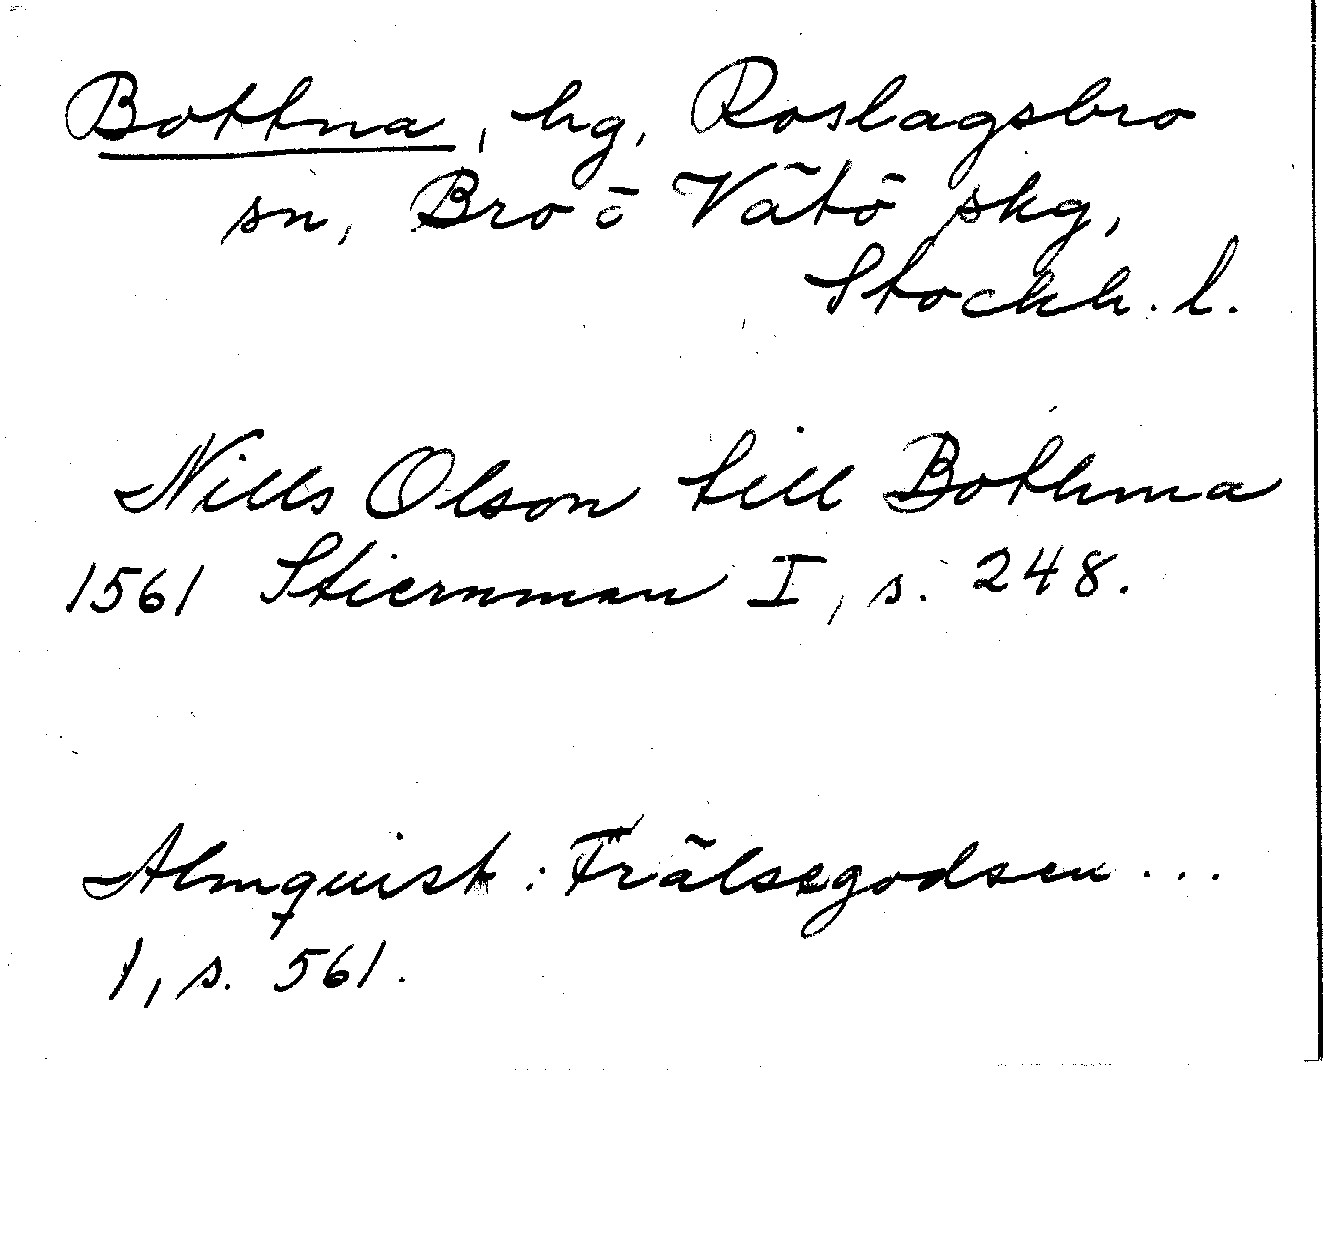 Bottna, hg, Roslagsbro
sn, Bro ö Vätö skg,
Stockh. l.
Nills Olson till Bothna
1561 Stiernman I, s. 248.
Almquist: Frälsegodsen...
1, s. 561.